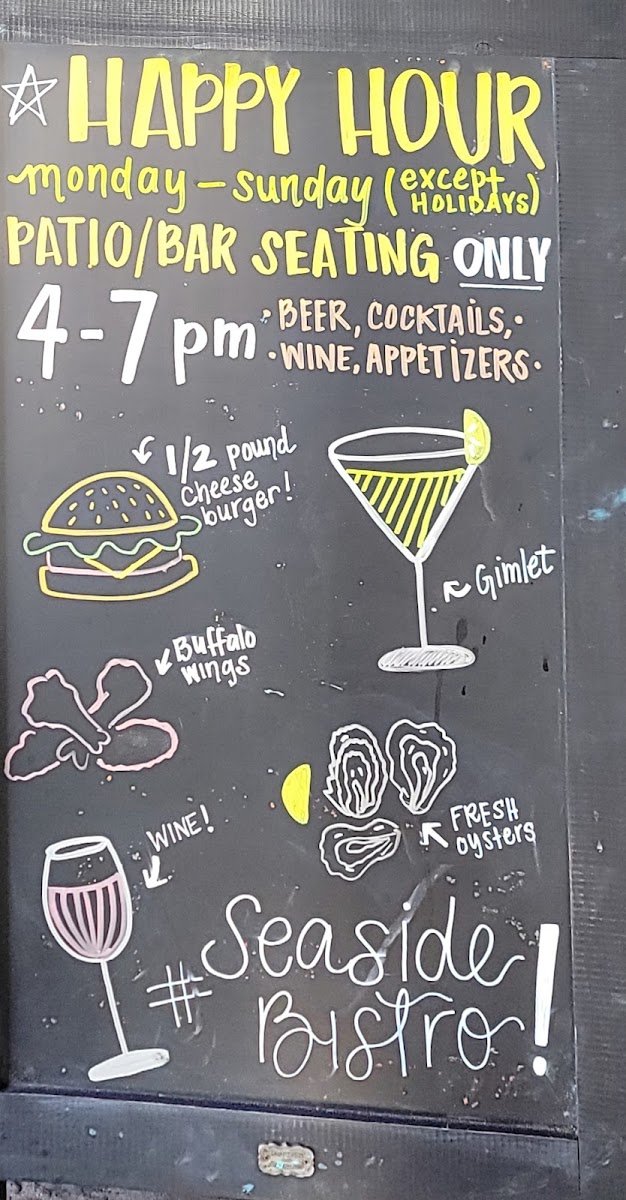 HAPPY HOUR
monday - sunday (except HOLIDAYS)
PATIO/BAR SEATING ONLY
4-7pm
• BEER, COCKTAILS, •
• WINE, APPETIZERS •
1/2 pound
cheese
burger!
Gimlet
Buffalo
wings
FRESH
oysters
WINE!
#Seaside
Bistro!